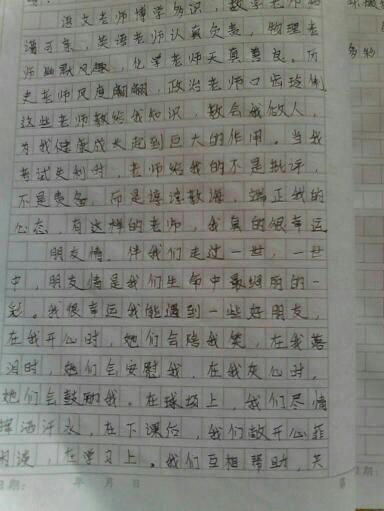 语文老师博学多识，数学老师和
蔼可亲，英语老师认真负责，物理老
师幽默风趣，化学老师天真善良。历
史老师风度翩翩，政治老师口齿伶俐
这些老师教给我知识，教会我做人，
为我健康成长起到巨大的作用。当我
考试失利时，老师给我的不是批评，
不是责备，而是谆谆教诲，端正我的
心态，有这样的老师，我真的很幸运
朋友情，伴我们走过一世，一世
中，朋友情是我们生命中最绚丽的一
笔。我很幸运我能遇到一些好朋友，
在我开心时，她们会陪我笑，在我落
泪时，她们会安慰我，在我灰心时，
她们会鼓励我。在球场上，我们尽情
挥洒汗水，在下课后，我们敞开心扉
在学习上。我们互相帮助，共
日期： 年 月 日 第